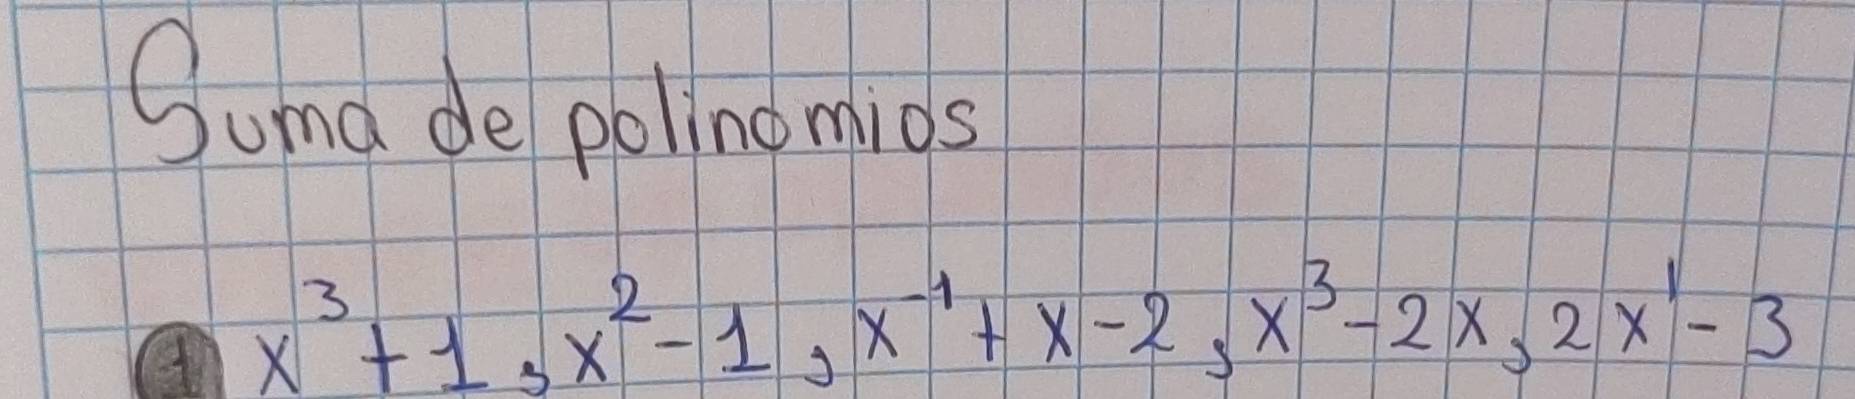 Suma de polinomios
1 x³ + 1, x² - 1, x⁻¹ + x - 2, x³ - 2x, 2x¹ - 3